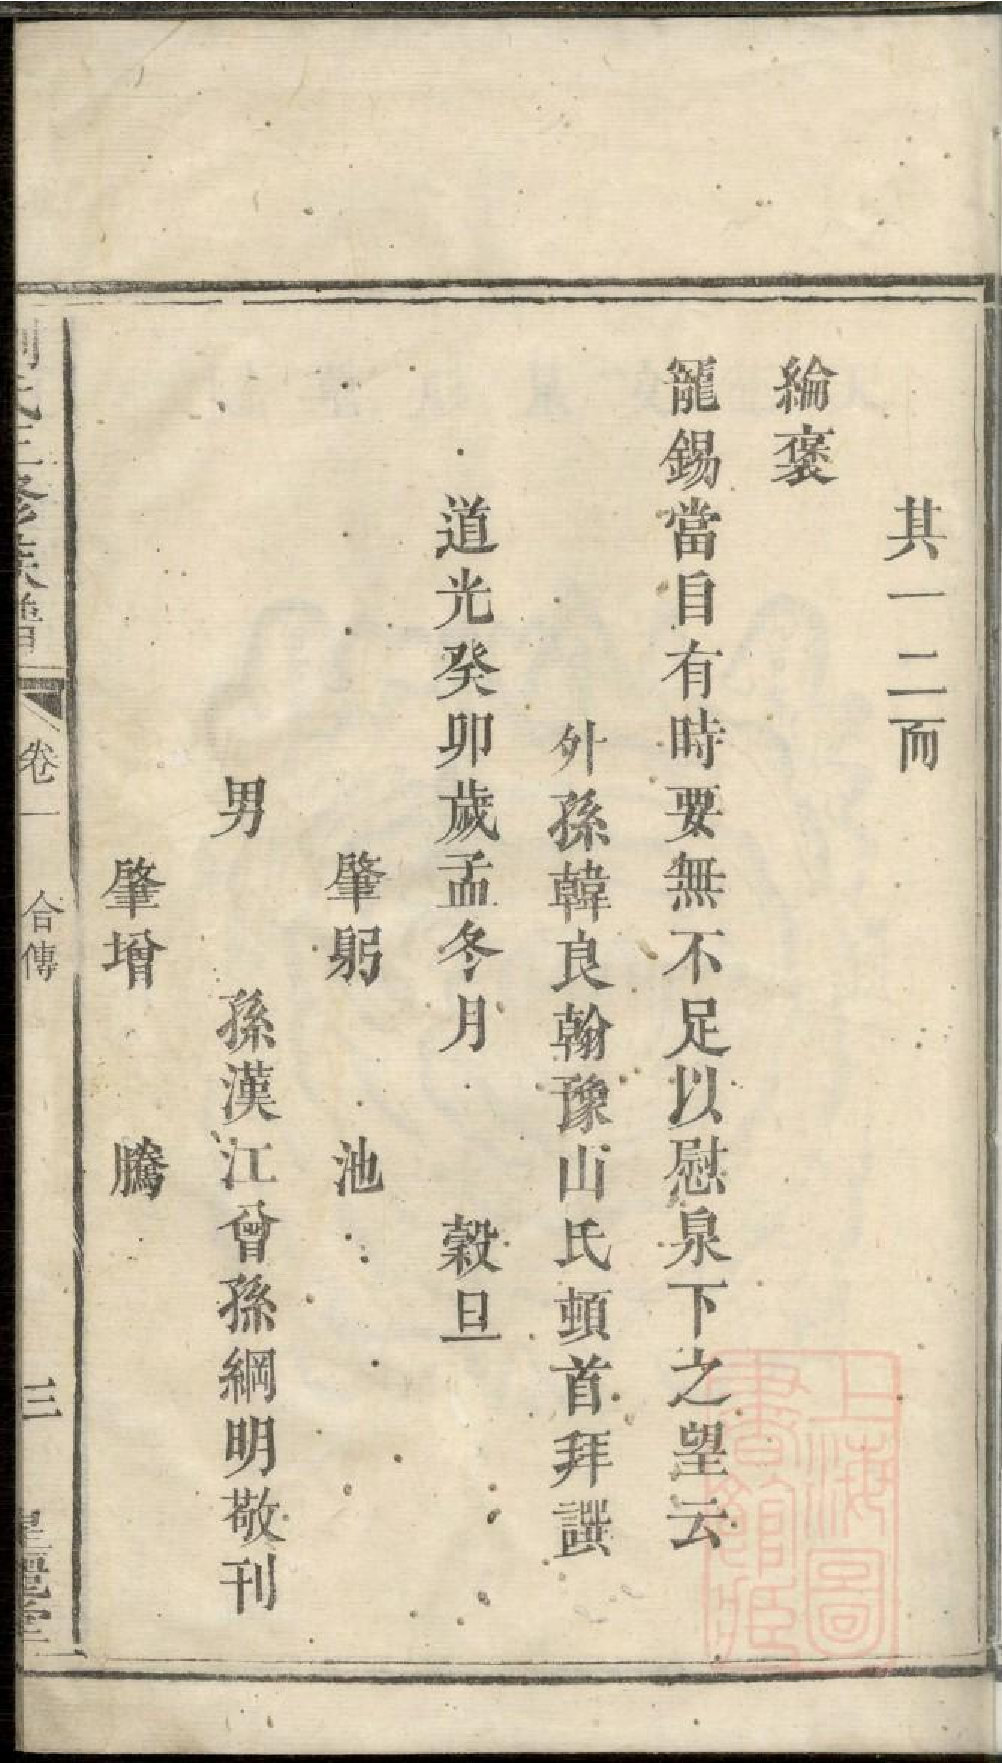 其一二而
綸褒
寵錫當自有時要無不足以慰泉下之望云
外孫韓良翰豫山氏頓首拜譔
道光癸卯歲孟冬月 穀旦
肇躬 池
男 孫漢江曾孫綱明敬刊
肇增 騰
氏三修族譜 卷一 合傳 三
上海圖書館藏